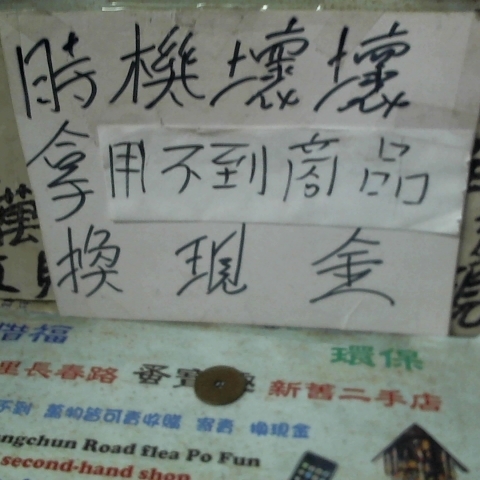 時機壞壞
拿用不到商品
換現金
惜福
環保
里長春路 蚤寶 新舊二手店
不到 萬物皆可賣收購 寄賣 換現金
ngchun Road flea Po Fun
second-hand shop